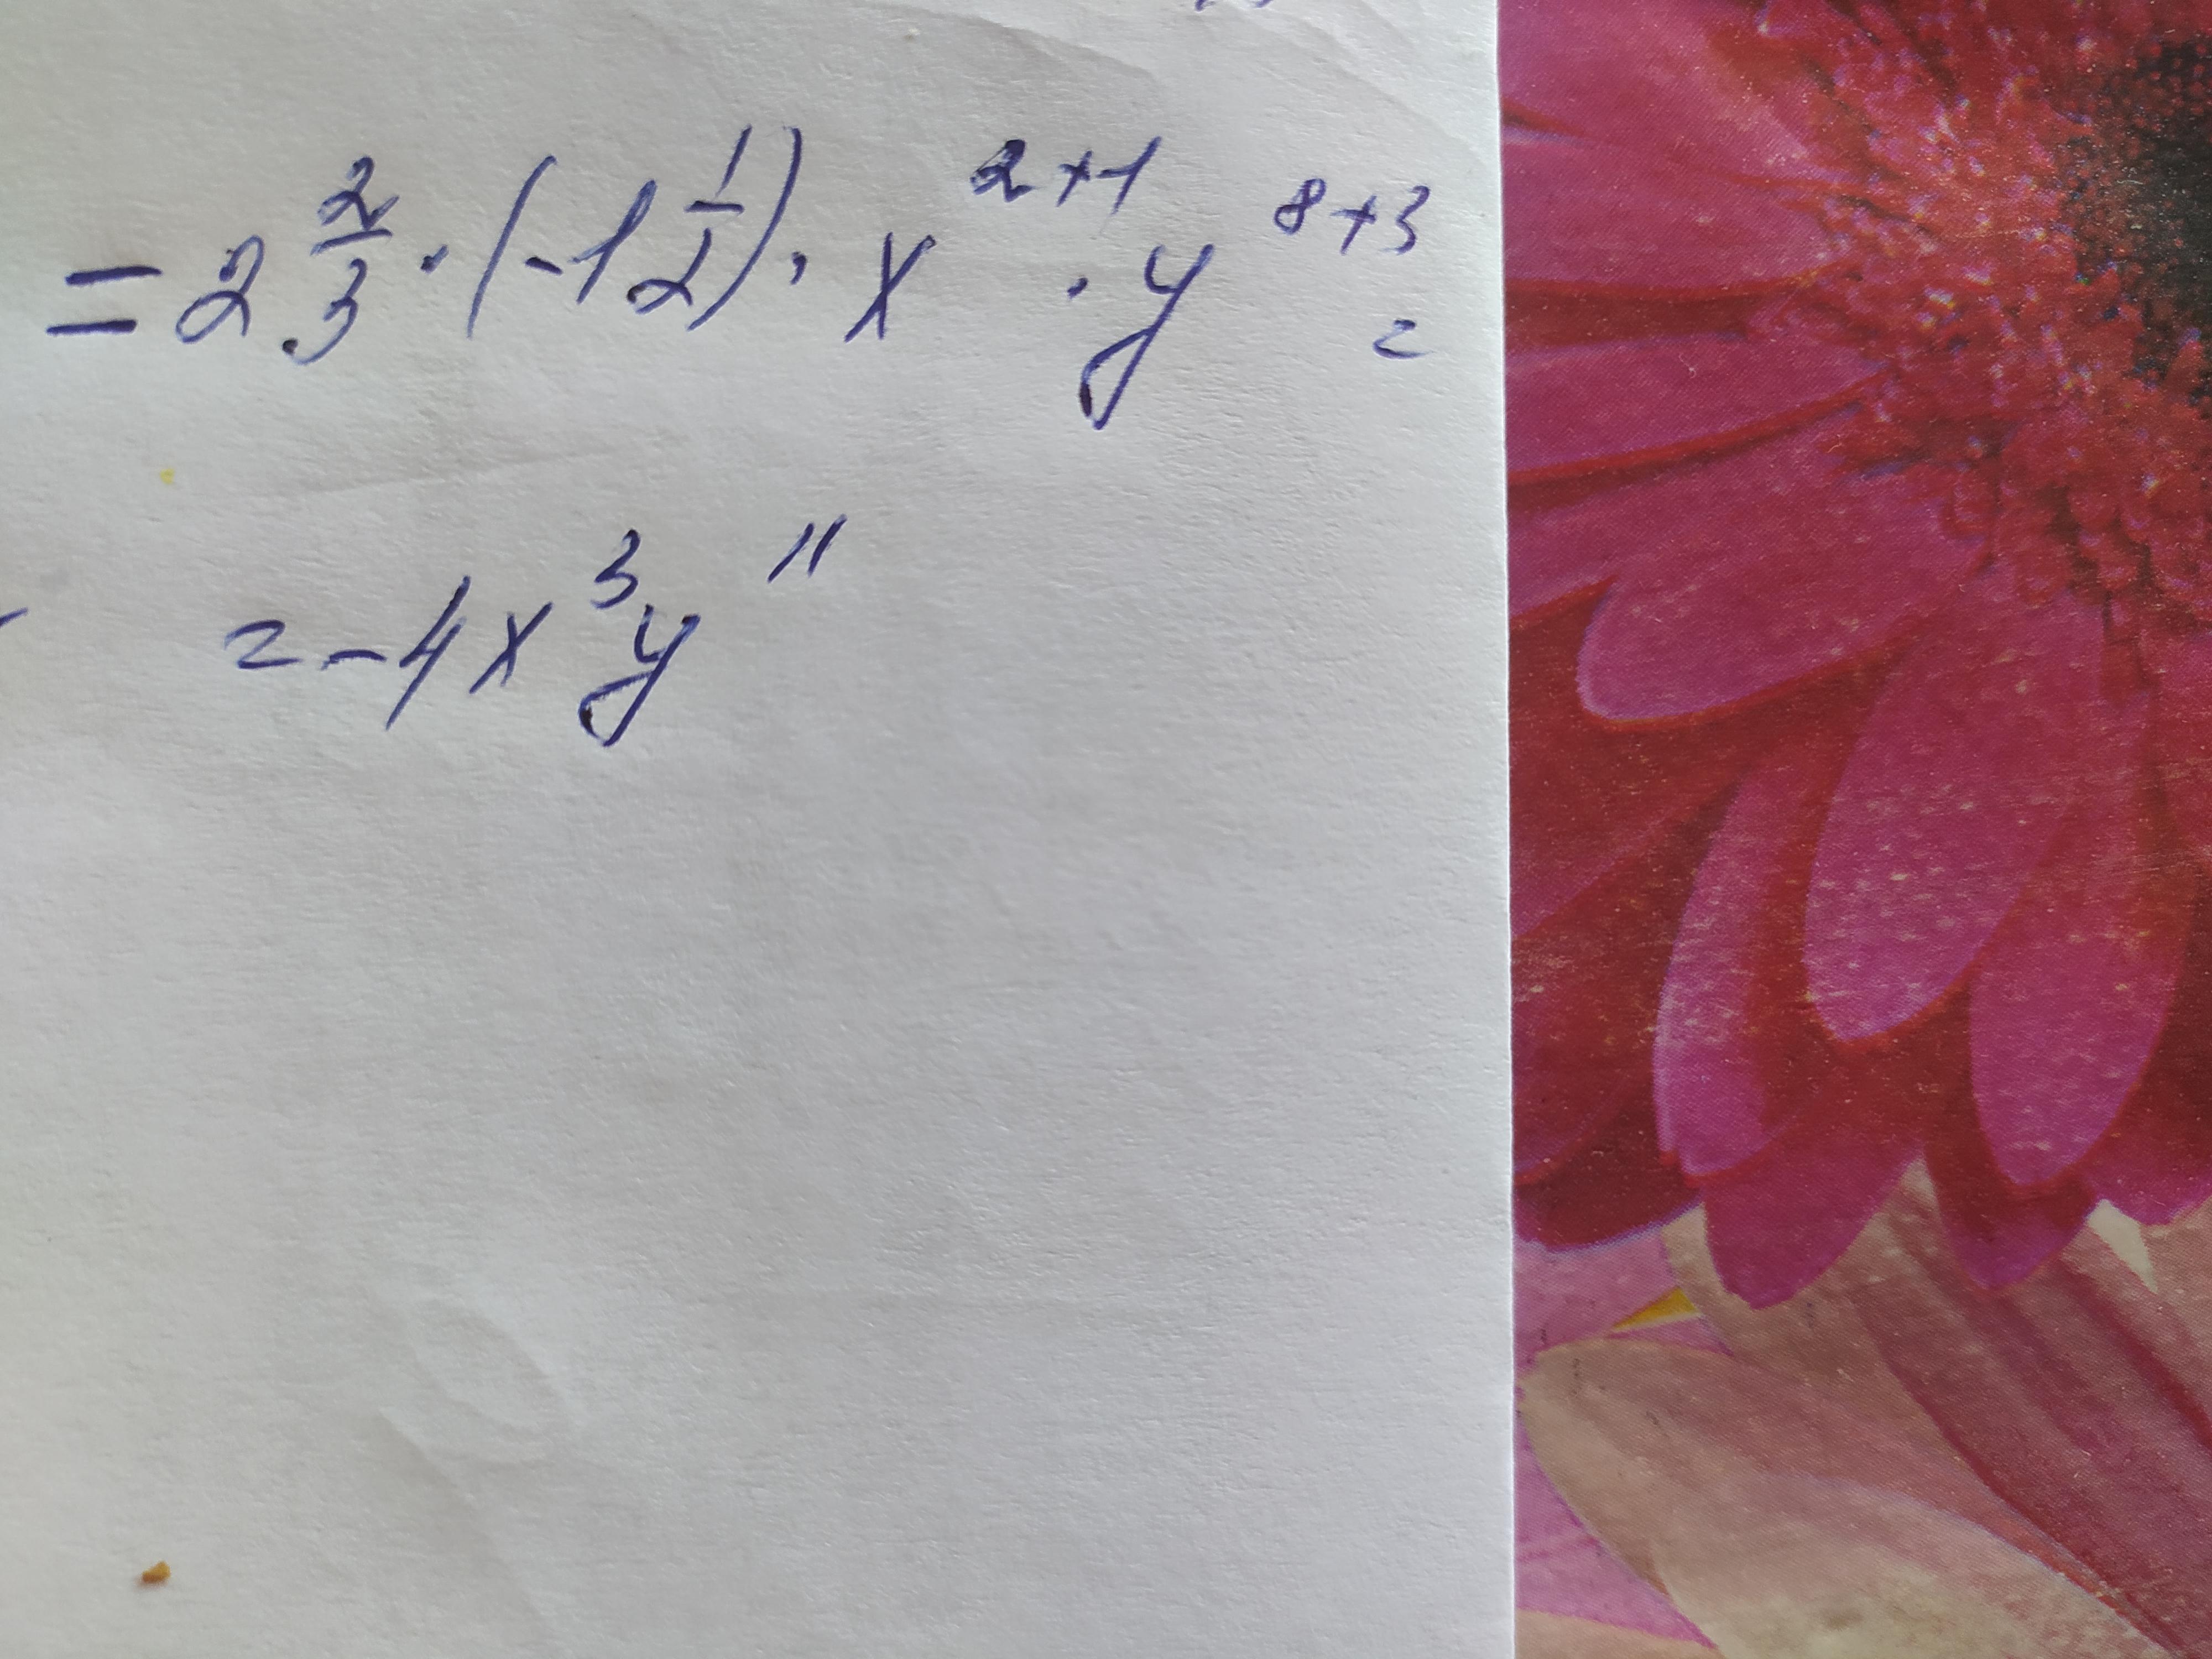 = 2 2/3 · (-1 1/2) · x^{2+1} · y^{8+3} =
= -4x^3y^{11}